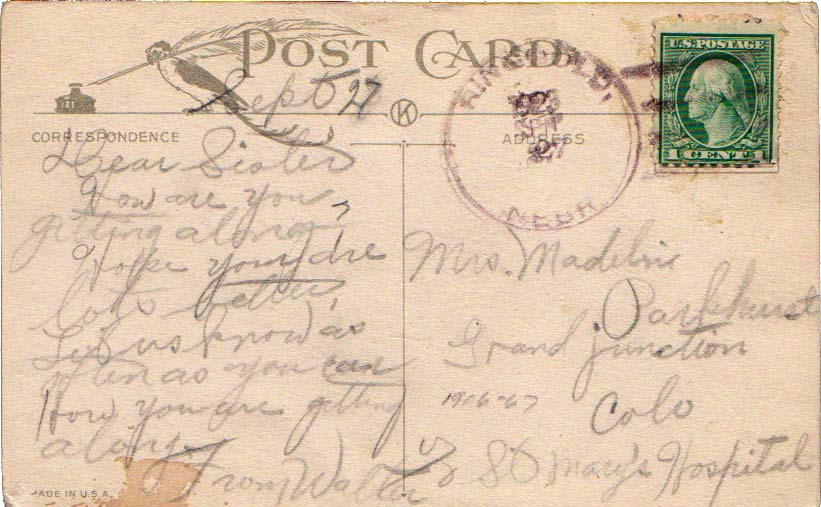 POST CARD
Sept 27
K
CORRESPONDENCE
ADDRESS
Dear Sister
How are you
getting along,
Hope you are
lots better,
Let us know as
often as you can
How you are getting
along
From Walter
MADE IN U.S.A.
1923
27
NEBR.
U.S. POSTAGE
1 CENT 1
Mrs. Madeline
Parkhurst
Grand Junction
Colo
% St Mary's Hospital